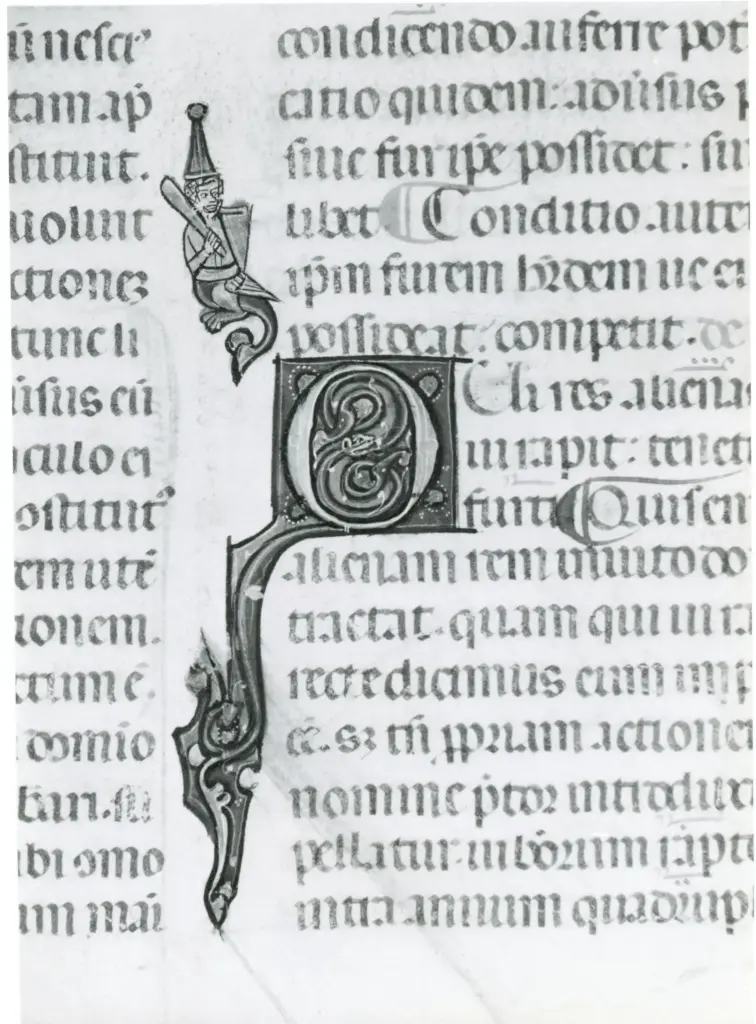 ũ nescr̃
tam ap̃
stituit.
uolunt
ctioneꝫ
tunc li
uisus cũ
iculo ei
ostitut᷒
em utẽ
ionem.
domio
bi omo
um mai
condicendo auferre pot
catio quidem: aduẽsus p
siue fur ip̃e possidet: siu
libet Conditio aute
ip̃m furem h̃edem ue ei
possideat: competit. de
Qui res aliena
iu rapit: teneti
furti Quis en
alienam rem inuito do
tractat. quam qui ui ra
recte dicimus eum imp
ẽ. sꝫ tñ ꝓpriam actione
nomine p̃tor introduc
pellatur ui bõrum rapto
intra annum quadrup